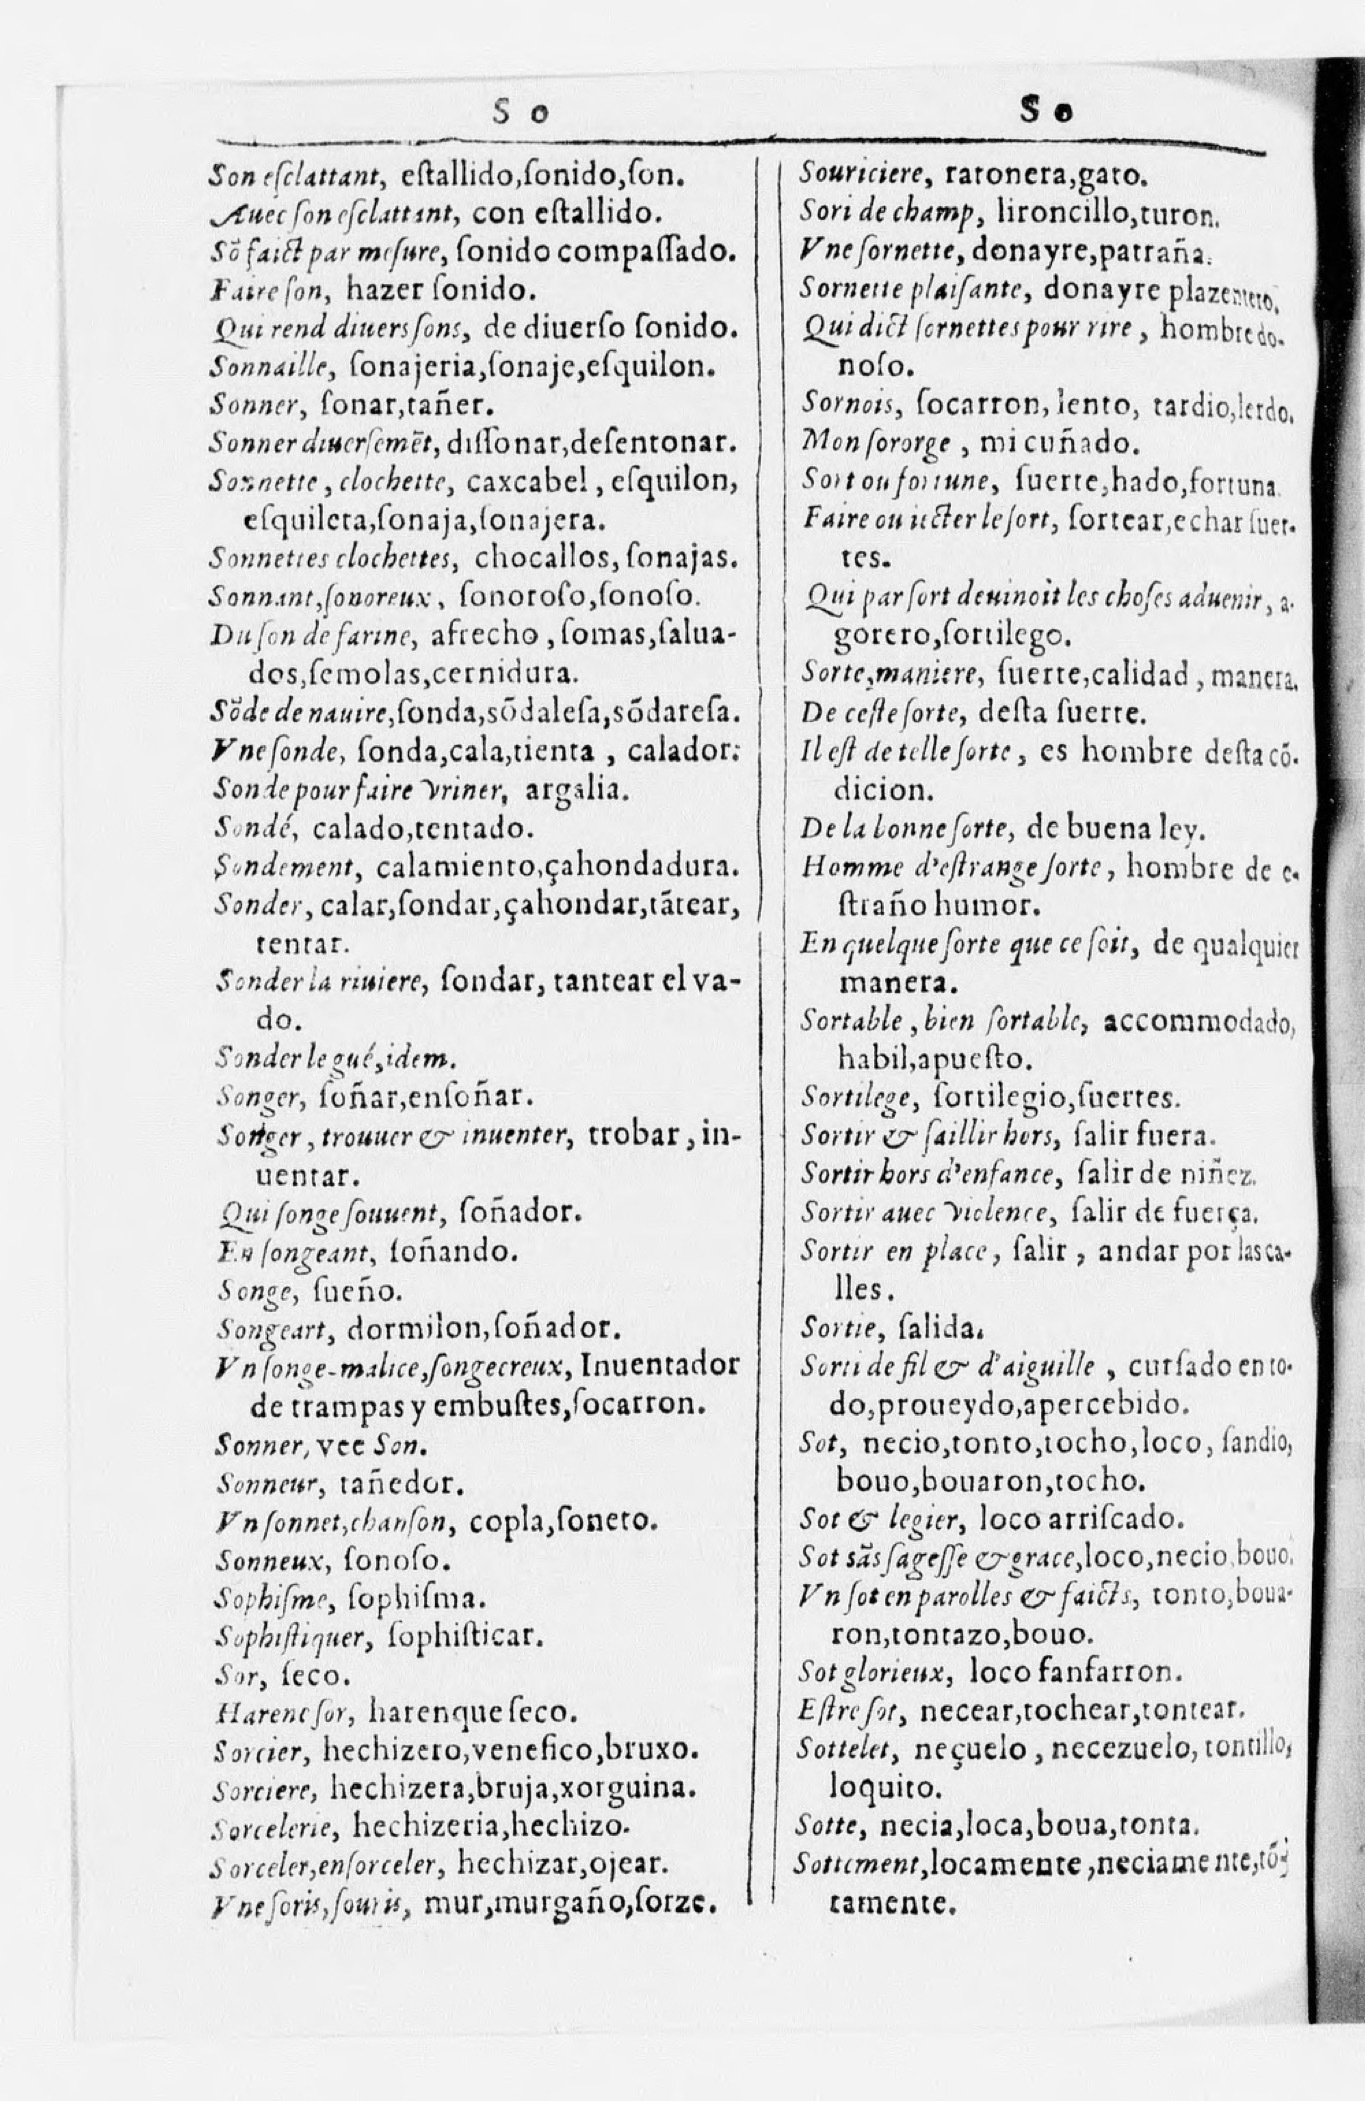 S o
Son eſclattant, eſtallido,ſonido,ſon.
Auec ſon eſclattant, con eſtallido.
Sõ faict par meſure, ſonido compaſſado.
Faire ſon, hazer ſonido.
Qui rend diuers ſons, de diuerſo ſonido.
Sonnaille, ſonajeria,ſonaje,eſquilon.
Sonner, ſonar,tañer.
Sonner diuerſemẽt, diſſonar,deſentonar.
Sonnette, clochette, caxcabel, eſquilon,
eſquileta,ſonaja,ſonajera.
Sonnettes clochettes, chocallos, ſonajas.
Sonnant,ſonoreux, ſonoroſo,ſonoſo.
Du ſon de farine, afrecho, ſomas,ſalua-
dos,ſemolas,cernidura.
Sõde de nauire,ſonda,sõdaleſa,sõdareſa.
Vne ſonde, ſonda,cala,tienta, calador.
Sonde pour faire vriner, argalia.
Sondé, calado,tentado.
Sondement, calamiento,çahondadura.
Sonder, calar,ſondar,çahondar,tãtear,
tentar.
Sonder la riuiere, ſondar, tantear el va-
do.
Sonder le gué,idem.
Songer, ſoñar,enſoñar.
Songer, trouuer & inuenter, trobar, in-
uentar.
Qui ſonge ſouuent, ſoñador.
En ſongeant, ſoñando.
Songe, ſueño.
Songeart, dormilon,ſoñador.
Vn ſonge-malice,ſongecreux, Inuentador
de trampas y embuſtes,ſocarron.
Sonner, vee Son.
Sonneur, tañedor.
Vn ſonnet,chanſon, copla,ſoneto.
Sonneux, ſonoſo.
Sophiſme, ſophiſma.
Sophiſtiquer, ſophiſticar.
Sor, ſeco.
Harenc ſor, harenque ſeco.
Sorcier, hechizero,venefico,bruxo.
Sorciere, hechizera,bruja,xorguina.
Sorcelerie, hechizeria,hechizo.
Sorceler,enſorceler, hechizar,ojear.
Vne ſoris,ſouris, mur,murgaño,ſorze.
S o
Souriciere, ratonera,gato.
Sori de champ, lironcillo,turon.
Vne ſornette, donayre,patraña.
Sornette plaiſante, donayre plazentero.
Qui dict ſornettes pour rire, hombre do-
noſo.
Sornois, ſocarron, lento, tardio,lerdo.
Mon ſororge, mi cuñado.
Sort ou fortune, ſuerte,hado,fortuna.
Faire ou iecter le ſort, ſortear,echar ſuer-
tes.
Qui par ſort deuinoit les choſes aduenir, a-
gorero,ſortilego.
Sorte,maniere, ſuerte,calidad, manera.
De ceſte ſorte, deſta ſuerte.
Il eſt de telle ſorte, es hombre deſta cõ-
dicion.
De la bonne ſorte, de buena ley.
Homme d'eſtrange ſorte, hombre de e-
ſtraño humor.
En quelque ſorte que ce ſoit, de qualquier
manera.
Sortable, bien ſortable, accommodado,
habil,apueſto.
Sortilege, ſortilegio,ſuertes.
Sortir & ſaillir hors, ſalir fuera.
Sortir hors d'enfance, ſalir de niñez.
Sortir auec violence, ſalir de fuerça.
Sortir en place, ſalir, andar por las ca-
lles.
Sortie, ſalida.
Sorti de fil & d'aiguille, curſado en to-
do,proueydo,apercebido.
Sot, necio,tonto,tocho,loco, ſandio,
bouo,bouaron,tocho.
Sot & legier, loco arriſcado.
Sot sãs ſageſſe & grace,loco,necio,bouo.
Vn ſot en parolles & faicts, tonto,boua-
ron,tontazo,bouo.
Sot glorieux, loco fanfarron.
Eſtre ſot, necear,tochear,tontear.
Sottelet, neçuelo, necezuelo, tontillo,
loquito.
Sotte, necia,loca,boua,tonta.
Sottement,locamente,neciamente,tõ-
tamente.